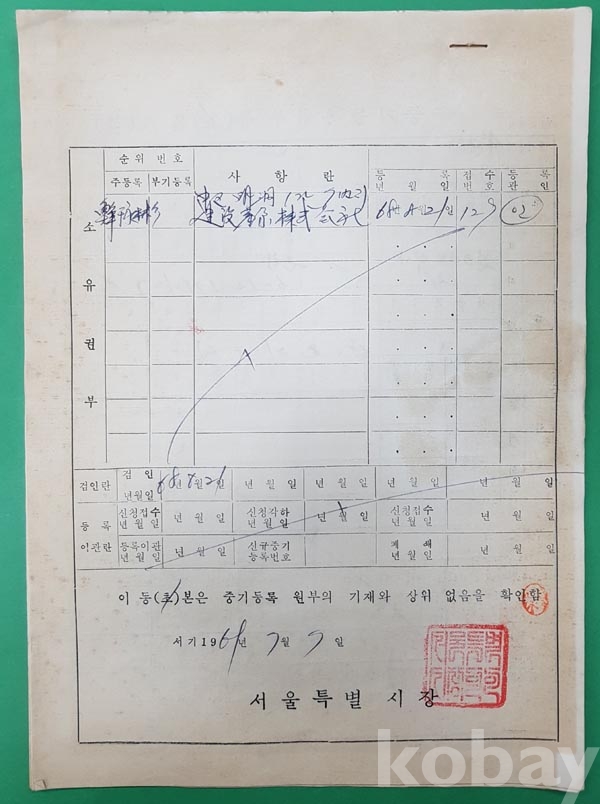 순위 번호
주등록 부기등록
사항란
등록
년 월 일
접수
번호
등록
관인
建設 株式会社 68年 8月 21日 129 인
소유권부
검인란
검인
년월일
68 8 21
년 월 일 년 월 일 년 월 일 년 월 일 년 월 일
등록
신청접수
년월일
년 월 일
신청각하
년월일
년 월 일
신청접수
년월일
년 월 일
이관란
등록이관
년월일
년 월 일
신규중기
등록번호
폐쇄
년월일
년 월 일
이 등(초)본은 중기등록 원부의 기재와 상위 없음을 확인함
서기 1969년 7월 7일
서울특별시장
kobay